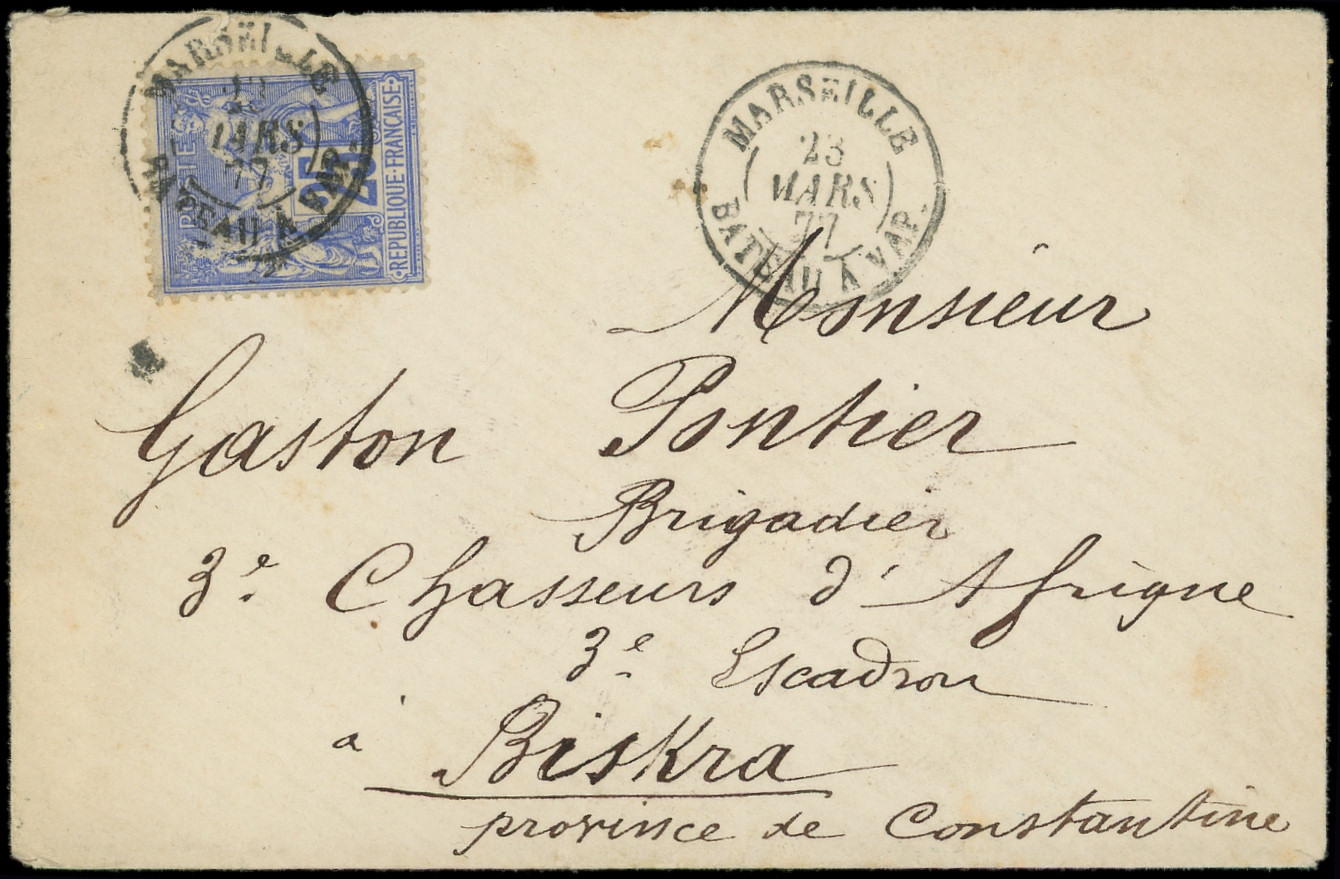 MARSEILLE
MARS
77
BATEAU À VAP.
POSTE
25
REPUBLIQUE·FRANÇAISE
MARSEILLE
23
MARS
77
BATEAU À VAP.
Monsieur
Gaston Pontier
Brigadier
3e Chasseurs d'Afrique
3e Escadron
à Biskra
province de Constantine